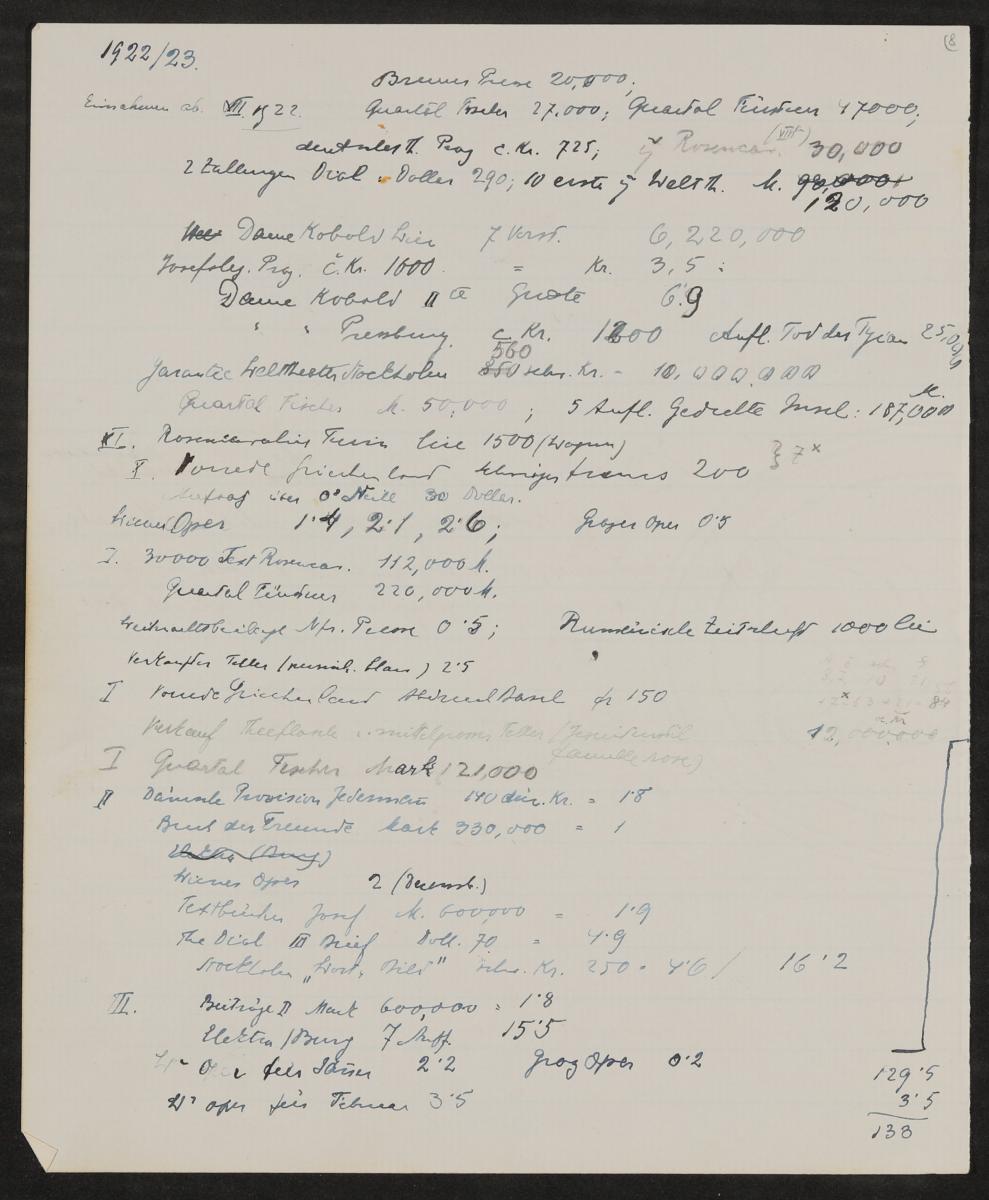 1922/23.
Bremer Presse 20,000;
Einnahmen ab. VII. 1922. Quartal Fischer 27,000; Quartal Fürstner 47000;
deutsches Th. Prag c. Kr. 725; Rosencav. (VIII) 30,000
2 Zallungen Dial Dollar 290; 10 erste Welt th. M. 90,000
120,000
Dame Kobold Wien 7 Vorst. 6,220,000
Josefsleg. Prag. č. Kr. 1000. = Kr. 3,5
Dame Kobold II te Quote 6.9
" " Pressburg. c. Kr. 1200 Aufl. Tod des Tizian 25,000
560
Garantie Welttheater Stockholm 350 schw. Kr. = 10,000,000
Quartal Fischer M. 50,000; 5 Aufl. Gedichte Insel: 187,000 M.
XI. Rosencavalier Turin Lire 1500 (Wagner)
X. Vorrede Griechenland schweizer francs 200 } 7 x
Aufsatz über O'Neill 30 Dollar.
Wiener Oper 1·4, 2·1, 2·6; Grazer Oper 0·5
I. 30000 Text Rosencav. 112,000 M.
Quartal Fürstner 220,000 M.
Weihnachtsbeilage N. fr. Presse 0·5; Rumänische Zeitschrift 1000 Lei
Verkaufter Teller 2·5
I Vorrede Griechenland Basel fr 150
Verkauf Theeflasche u. mittelgrosser Teller 12,000,000
(famille rose)
I Quartal Fischer Mark 121,000
II Dänische Provision Jedermann 140 dän. Kr. = 1·8
Buch der Freunde Mark 330,000 = 1
Elektra (Burg)
Wiener Oper 2 (Decemb.)
Textbücher Josef M. 600,000 = 1·9
The Dial III Brief Doll. 70 = 4·9
Stockholm „Wort, Bild" schw. Kr. 250 = 4·6 / 16·2
III. Beiträge II Mark 600,000 = 1·8
Elektra /Burg 7 Auff. 15·5
Wr Oper für Jänner 2·2 Graz Oper 0·2
129·5
Wr oper für Februar 3·5 3·5
133